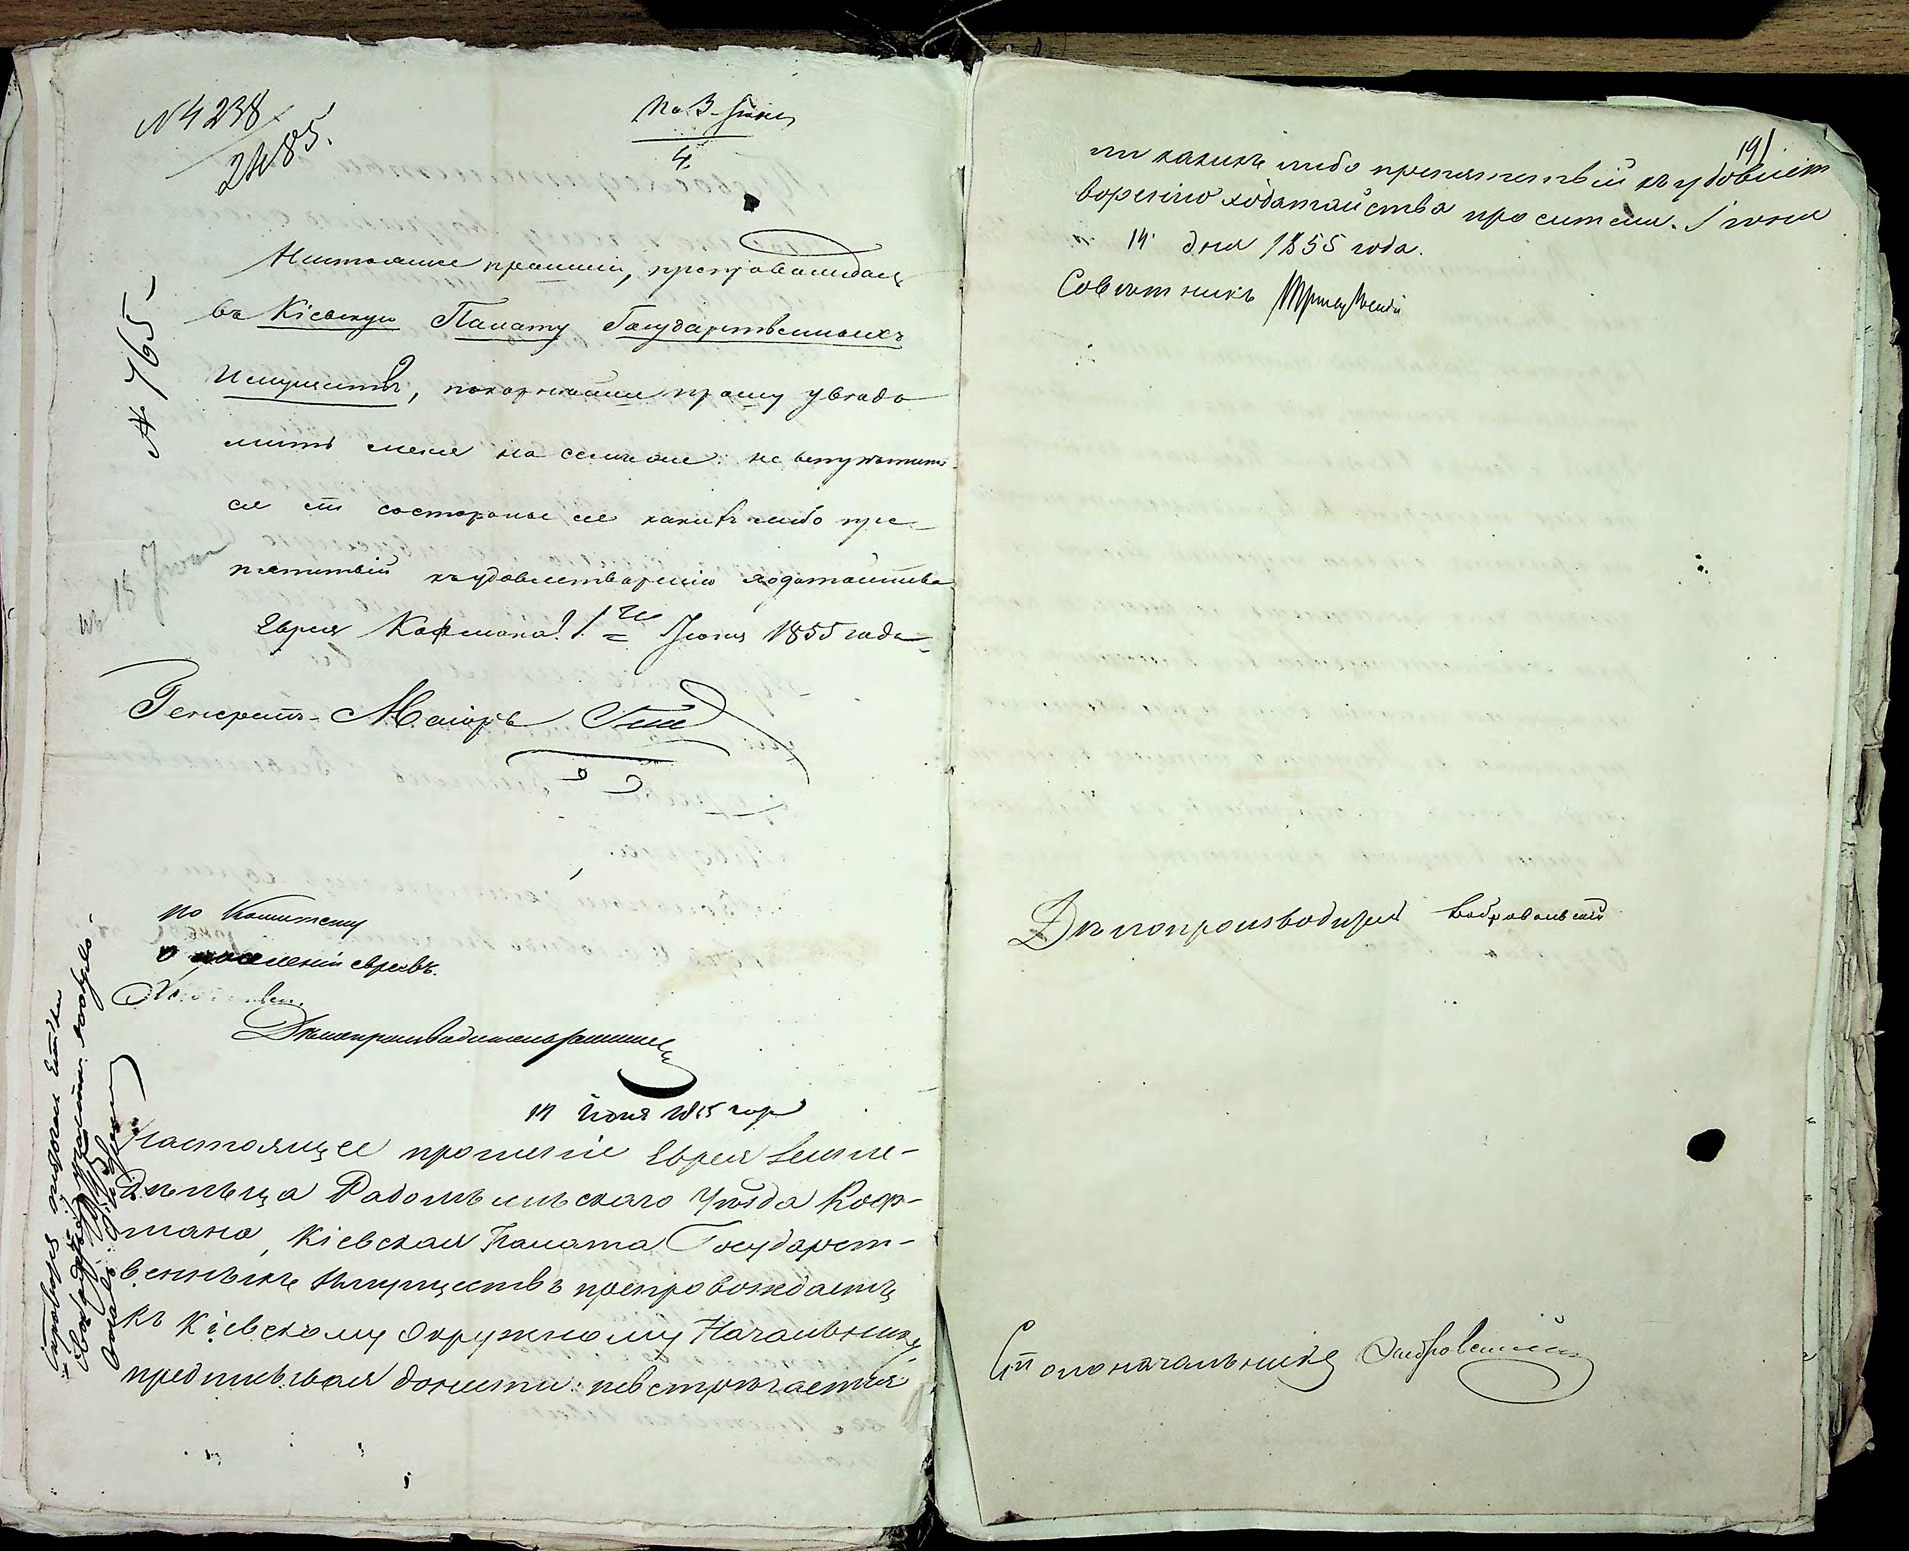 № 4238
2485.
Пол. 3 Июня
4
№ 765
Настоящее прошеніе, препровождая
въ Кіевскую Палату Государственныхъ
Имуществъ, покорнѣйше прошу увѣдо
мить меня на семъ же: не встрѣтит
ся ли со стороны ея какихъ либо пре
пятствій къ удовлетворенію ходатайства
Еврея Кофмана? 1го Іюня 1855 года
Генералъ-Маіоръ
по Комитету
о поселеніи евреевъ.
Дѣлопроизводитель
14 Іюня 1855 года
Настоящее прошеніе Еврея Земле-
дѣльца Радомысльскаго Уѣзда Коф-
мана, Кіевская Палата Государст-
венныхъ Имуществъ препровождаетъ
къ Кіевскому Окружному Начальнику,
предписывая донести: невстрѣчается
191
ли какихъ либо препятствій къ удовлет
воренію ходатайства просителя. Іюня
14 дня 1855 года.
Совѣтникъ
Дѣлопроизводитель
Столоначальникъ